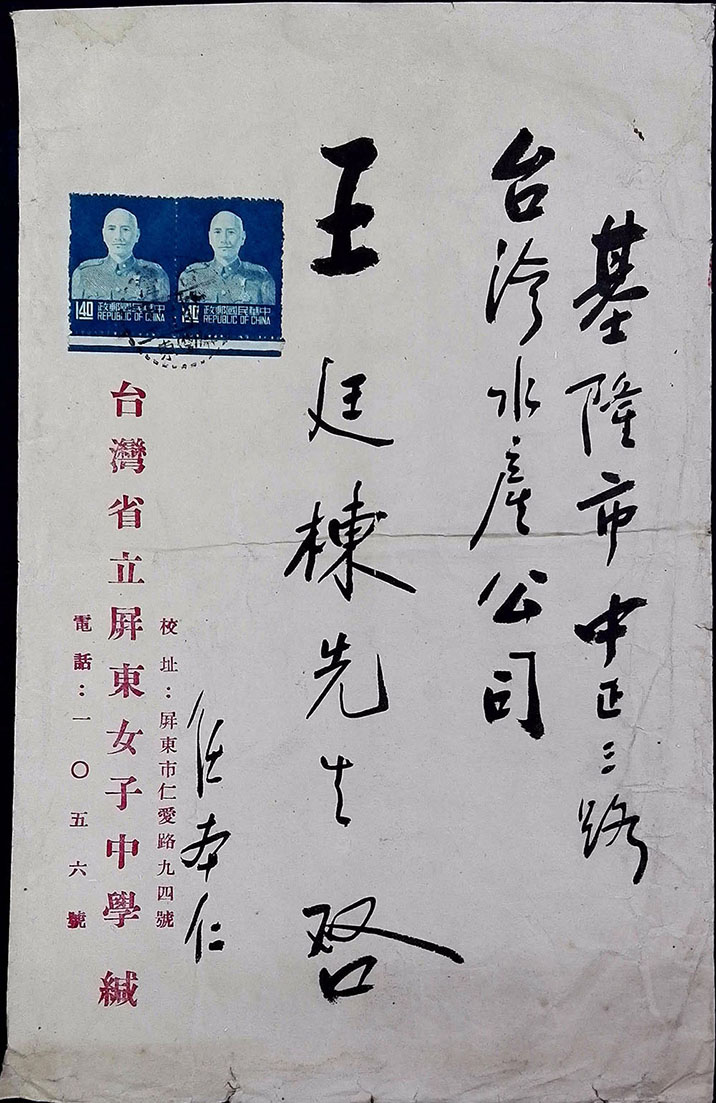 基隆市中正三路
台湾水産公司
王廷棟先生 啓
任本仁
校址：屏東市仁愛路九四號
台灣省立屏東女子中學 緘
電話：一〇五六號
中華民國郵政
REPUBLIC OF CHINA
140
中華民國郵政
REPUBLIC OF CHINA